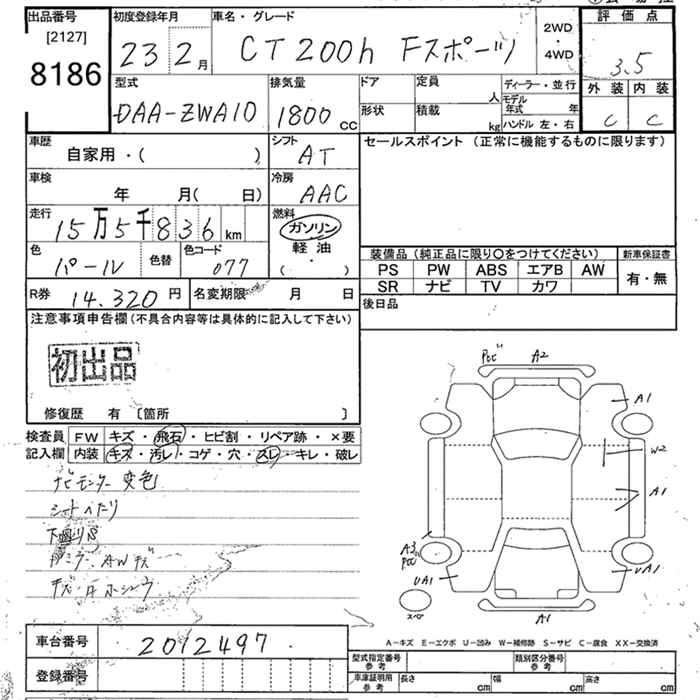 出品番号
[2127]
8186
初度登録年月
23 2月
車名・グレード
CT200h Fスポーツ
2WD
・
4WD
評価点
3.5
外装 内装
C C
型式
DAA-ZWA10
排気量
1800cc
ドア
形状
定員
人
積載
kg
ディーラー・並行
モデル年式 年
ハンドル 左・右
車歴
自家用・( )
シフト
AT
車検
年 月( 日)
冷房
AAC
走行
15万5千836km
燃料
ガソリン
軽油
・
( )
色
パール
色替
色コード
077
R券 14,320円
名変期限 月 日
セールスポイント (正常に機能するものに限ります)
装備品 (純正品に限り○をつけてください)
PS PW ABS エアB AW
SR ナビ TV カワ
新車保証書
有・無
後日品
注意事項申告欄 (不具合内容等は具体的に記入して下さい)
初出品
修復歴 有 〔箇所 〕
検査員記入欄
FW キズ・飛石・ヒビ割・リペア跡・×要
内装 キズ・汚レ・コゲ・穴・スレ・キレ・破レ
ナビモニター 変色
シートヘたり
下廻りS
ドアミラー、AWキズ
車台番号 2012497
登録番号
A2
A1
W2
A1
A3
UA1
UA1
スペア
A1
A-キズ E-エクボ U-凹み W-補修跡 S-サビ C-腐食 XX-交換済
型式指定番号
参考
類別区分番号
参考
車庫証明用
参考
長さ cm
幅 cm
高さ cm